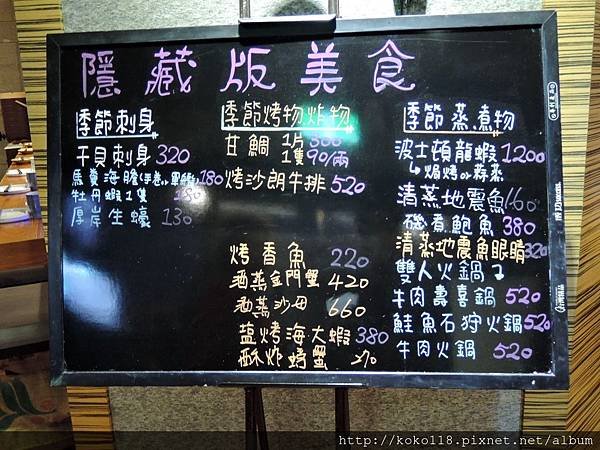 隱藏版美食
季節刺身
干貝刺身 320
馬糞海膽(手卷or軍艦) 180
牡丹蝦1隻 180
厚岸生蠔 130
季節烤物炸物
甘鯛 1片 300
1隻 90/兩
烤沙朗牛排 520
烤香魚 220
酒蒸金門蟹 420
酒蒸沙母 660
鹽烤海大蝦 380
酥炸螃蟹
季節蒸煮物
波士頓龍蝦 1200
焗烤or蒜蓉
清蒸地震魚 160
磯煮鮑魚 380
清蒸地震魚眼睛 320
雙人火鍋
牛肉壽喜鍋 520
鮭魚石狩火鍋 520
牛肉火鍋 520
http://koko118.pixnet.net/album